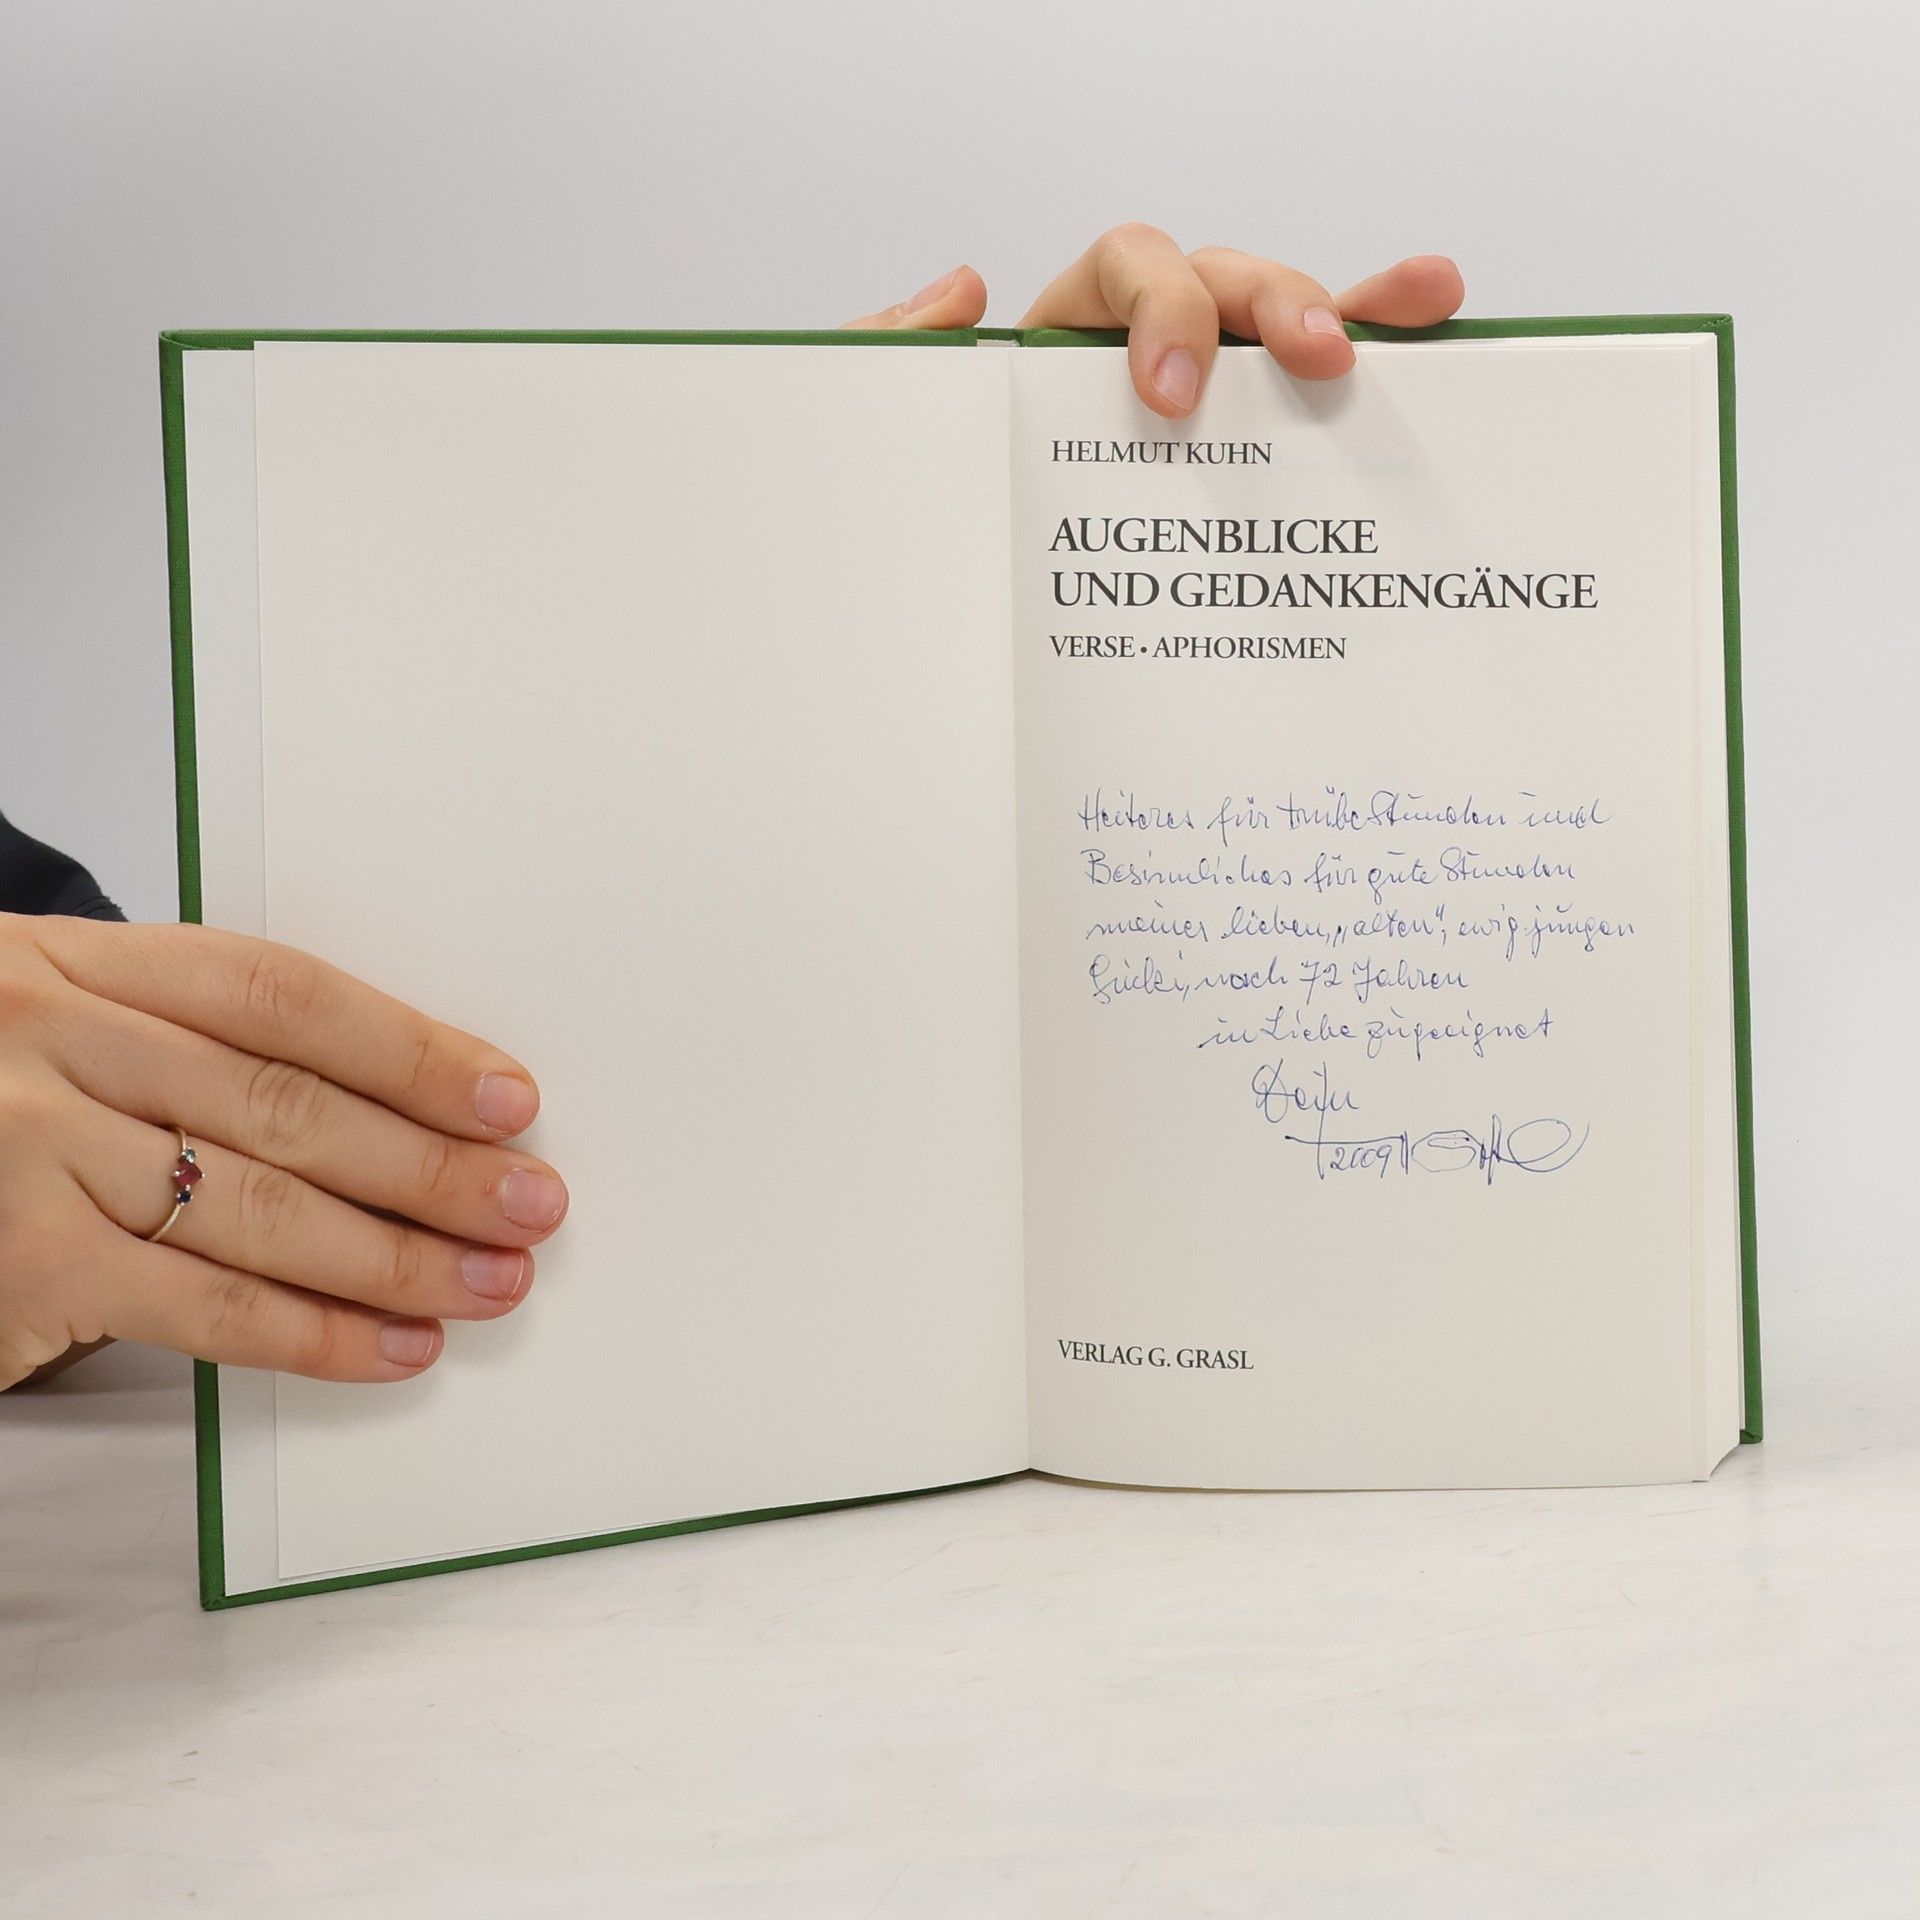 HELMUT KUHN
AUGENBLICKE
UND GEDANKENGÄNGE
VERSE • APHORISMEN
Heiteres für trübe Stunden und
Besinnliches für gute Stunden
meiner lieben, „alten“, ewig jungen
nach 72 Jahren
in Liebe zugeeignet
2009
VERLAG G. GRASL